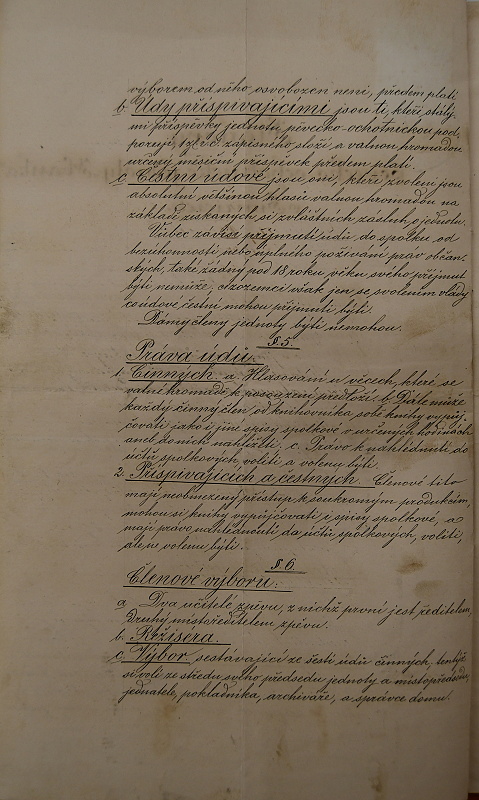 výborem od něho osvobozen není, předem platí.
b. Údy přispívajícími jsou ti, kteří stálý-
mi příspěvky jednotu pěvecko-ochotnickou pod-
porují, 1 zl. r. č. zápisného složí a valnou hromadou
určený měsíční příspěvek předem platí.
c. Čestní údové jsou oni, kteří zvoleni jsou
absolutní většinou hlasů valnou hromadou na
základě získaných si zvláštních zásluh o jednotu.
Vůbec závisí přijmutí údů do spolku od
bezúhonnosti nebo úplného požívání práv občan-
ských, také žádný pod 18 roků věku svého přijmut
býti nemůže. Cizozemci však jen se svolením vlády
co údové čestní mohou přijmuti býti.
Dámy členy jednoty býti nemohou.
§ 5.
Práva údů.
1. Činných. a. Hlasování u věcech, které se
valné hromadě k posouzení předloží. b. Dále může
každý činný člen od knihovníka sobě knihy vypůj-
čovati jako i jiné spisy spolkové v určených hodinách
aneb do nich nahlížeti. c. Právo k nahlédnutí do
účtů spolkových, voliti a volenu býti.
2. Přispívajících a čestných. Členové tito
mají neobmezený přístup k soukromým produkcím,
mohou si knihy vypůjčovati i spisy spolkové, a
mají právo nahlédnouti do účtů spolkových, voliti,
ale n volenu býti.
§ 6
Členové výboru:
a. Dva učitelé zpěvu, z nichž první jest ředitelem,
druhý místoředitelem zpěvu.
b. Režisera.
c. Výbor sestávající ze šesti údů činných, tentýž
si volí ze středu svého předsedu jednoty a místopředsedu,
jednatele, pokladníka, archiváře, a správce domu.